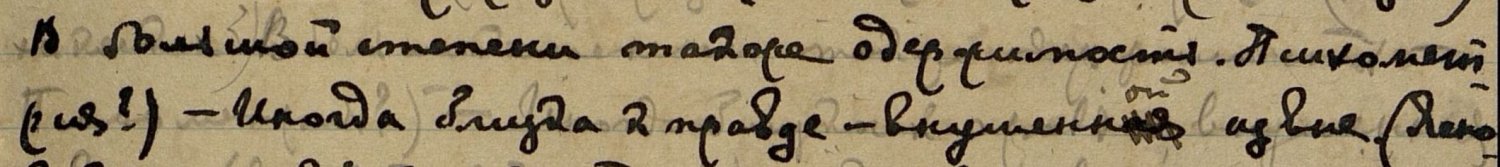 В большой степени также одержимость. Психомет
рия?) – Иногда близка к правде – внушенной извне. (Ясно